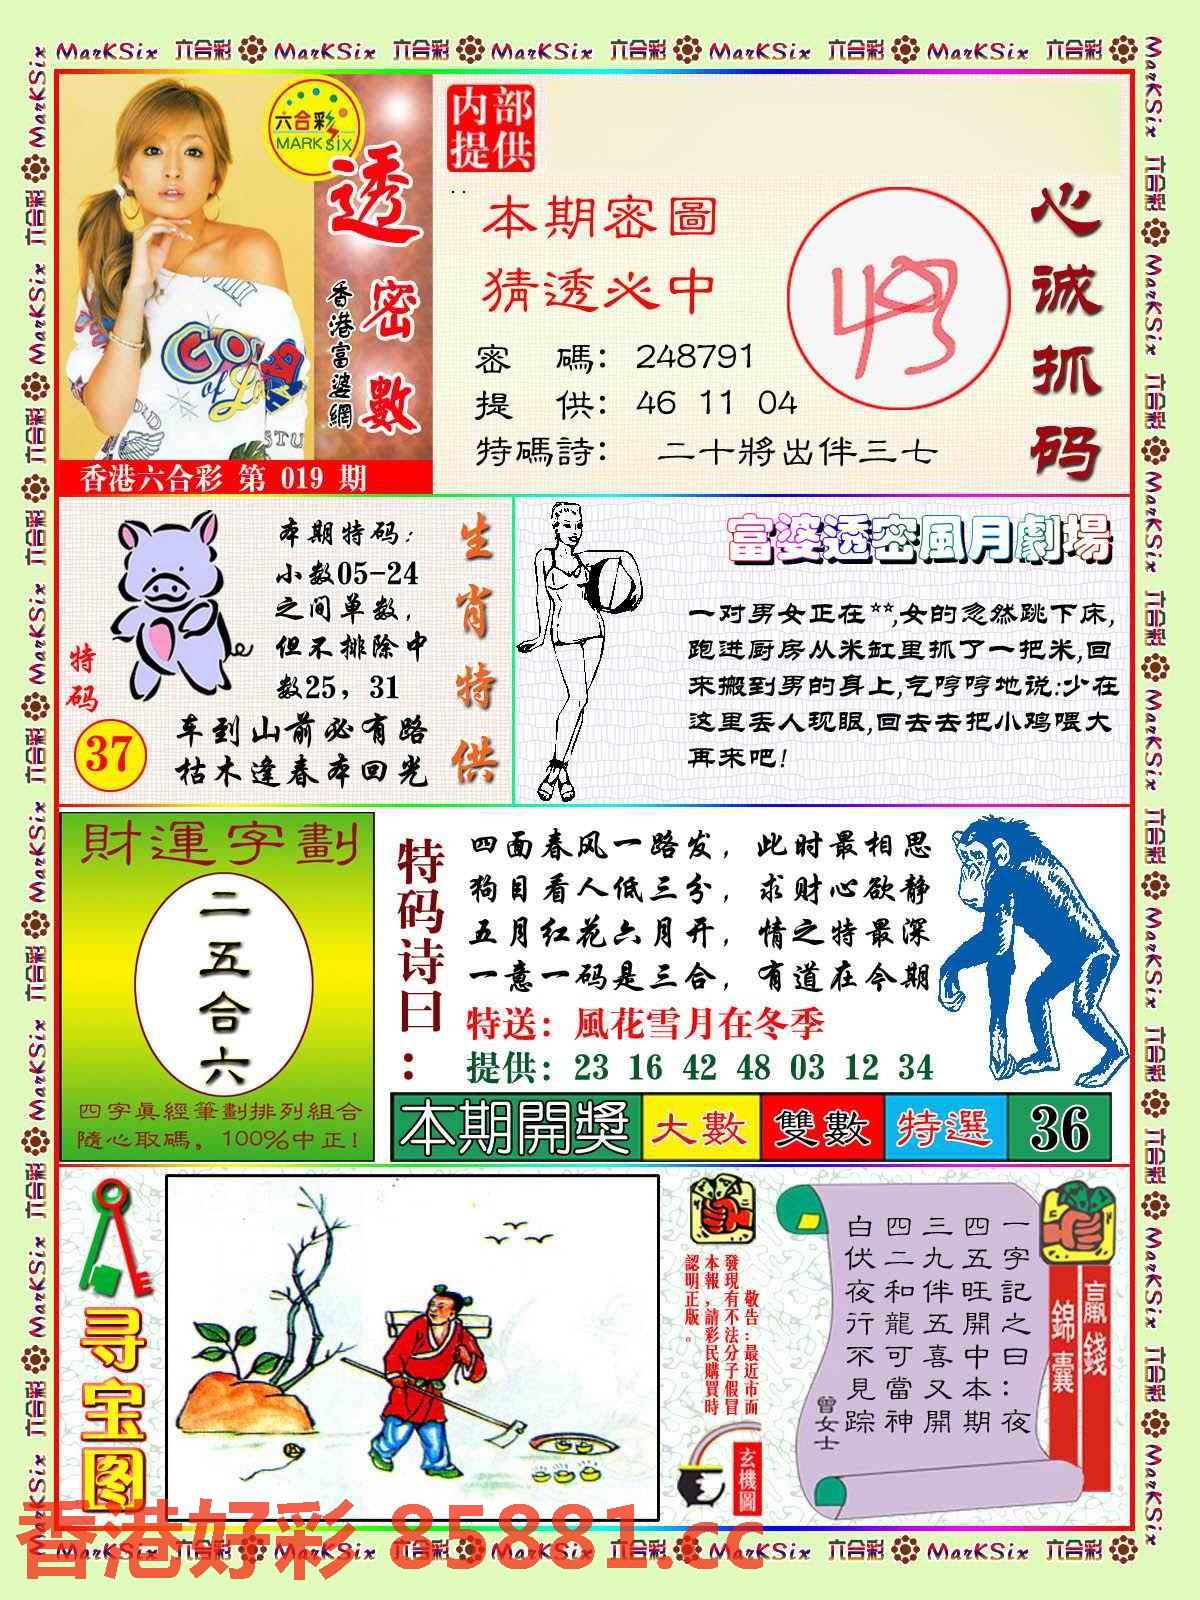 MarKSix 六合彩 MarKSix 六合彩 MarKSix 六合彩 MarKSix 六合彩 MarKSix 六合彩
六合彩
MARK SIX
透密數
香港富婆網
香港六合彩 第 019 期
内部
提供
本期密圖
猜透必中
密 碼: 248791
提 供: 46 11 04
特碼詩: 二十將出伴三七
心诚抓码
本期特码:
小数05-24
之间单数,
但不排除中
数25, 31
车到山前必有路
枯木逢春本回光
特码
37
生肖特供
富婆透密風月劇場
一对男女正在**,女的忽然跳下床,
跑进厨房从米缸里抓了一把米,回
来搬到男的身上,气哼哼地说:少在
这里丢人现眼,回去去把小鸡喂大
再来吧!
財運字劃
二
五
合
六
四字眞經筆劃排列組合
隨心取碼, 100%中正!
特码诗曰:
四面春风一路发, 此时最相思
狗目看人低三分, 求财心欲静
五月红花六月开, 情之特最深
一意一码是三合, 有道在今期
特送: 風花雪月在冬季
提供: 23 16 42 48 03 12 34
本期開獎 大數 雙數 特選 36
寻宝图
敬告:最近市面
發現有不法分子假冒
本報,請彩民購買時
認明正版。
玄機圖
一字記之曰:夜
四五旺開中本期
三九伴五喜又開
四二和龍可當神
白伏夜行不見踪
曾女士
贏錢
錦囊
香港好彩 85881.cc
MarKSix 六合彩 MarKSix 六合彩 MarKSix 六合彩 MarKSix 六合彩 MarKSix 六合彩